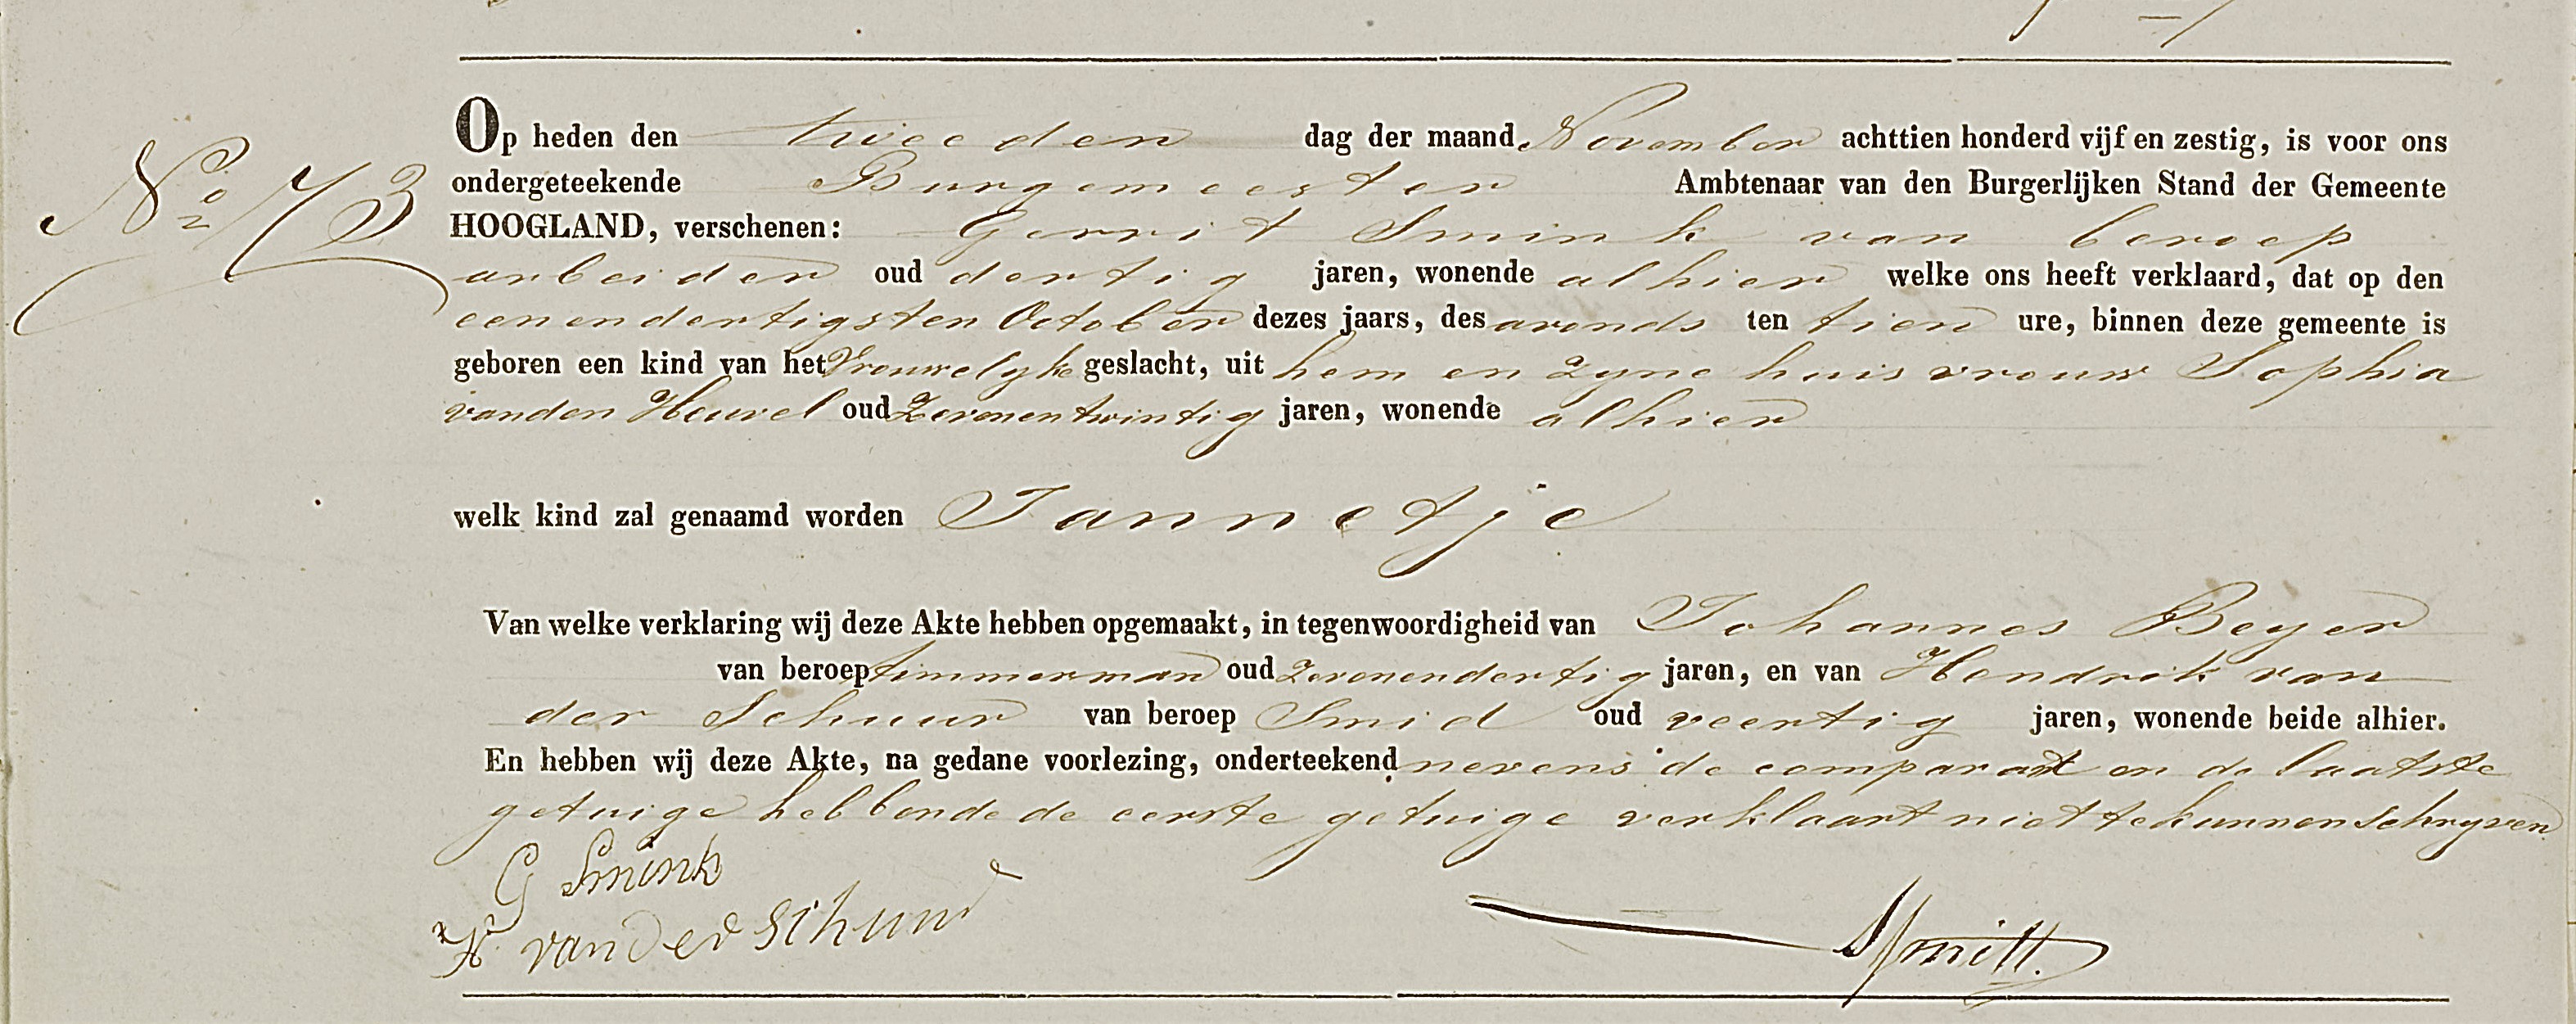 No 73
Op heden den tweeden dag der maand November achttien honderd vijf en zestig, is voor ons
ondergeteekende Burgemeester Ambtenaar van den Burgerlijken Stand der Gemeente
HOOGLAND, verschenen: Gerrit Smink van beroep
arbeider oud dertig jaren, wonende alhier welke ons heeft verklaard, dat op den
eenendertigsten October dezes jaars, des avonds ten tien ure, binnen deze gemeente is
geboren een kind van het Vrouwelyke geslacht, uit hem en zyne huisvrouw Sophia
vanden Heuvel oud Zevenentwintig jaren, wonende alhier
welk kind zal genaamd worden Jannetje
Van welke verklaring wij deze Akte hebben opgemaakt, in tegenwoordigheid van Johannes Beyer
van beroep timmerman oud zevenendertig jaren, en van Hendrik van
der Schuur van beroep Smid oud veertig jaren, wonende beide alhier.
En hebben wij deze Akte, na gedane voorlezing, onderteekend nevens de comparant en de laatste
getuige hebbende de eerste getuige verklaart niet te kunnen schryven
G Smink
H vander schuur
Smitt.